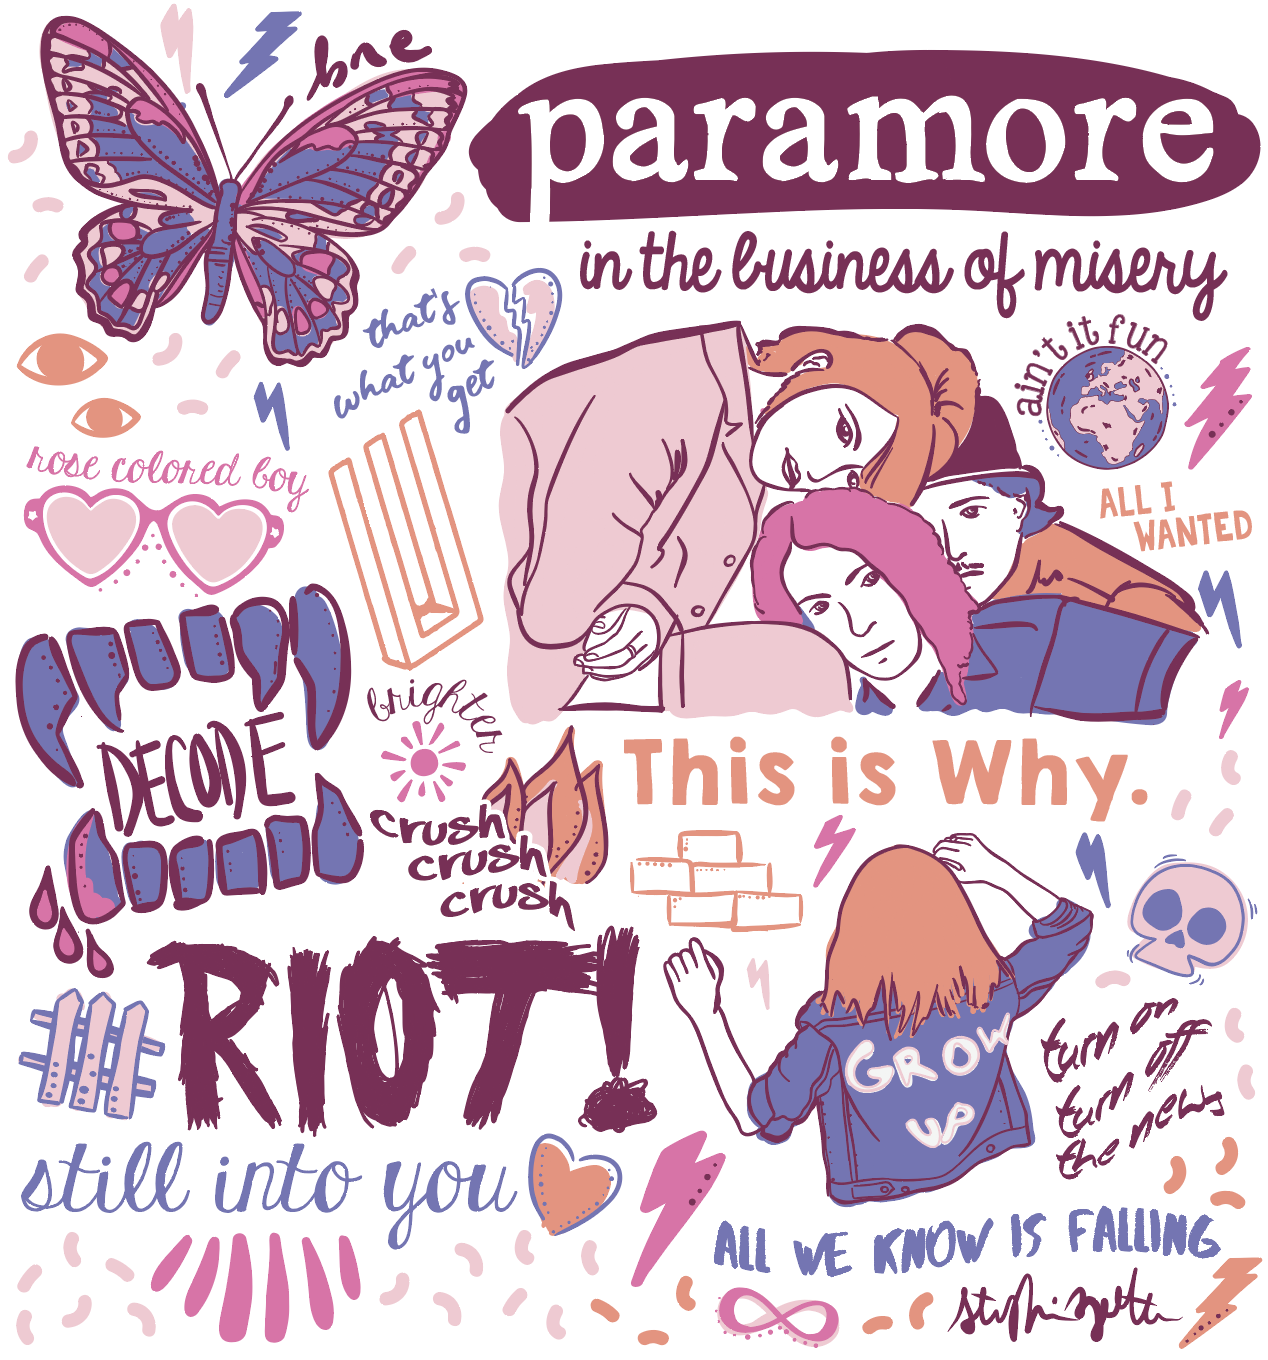 bne
paramore
in the business of misery
that's
what you
get
ain't it fun
rose colored boy
ALL I
WANTED
DECODE
brighter
This is Why.
crush
crush
crush
RIOT!
GROW
UP
turn on
turn off
the news
still into you
ALL WE KNOW IS FALLING